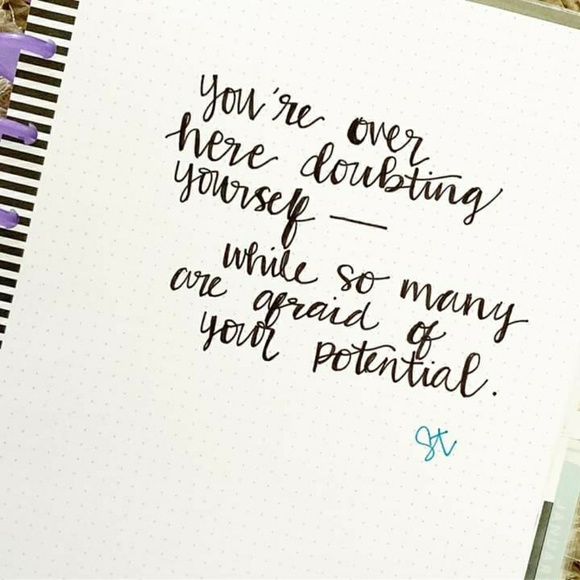 you're over
here doubting
yourself —
while so many
are afraid of
your potential.